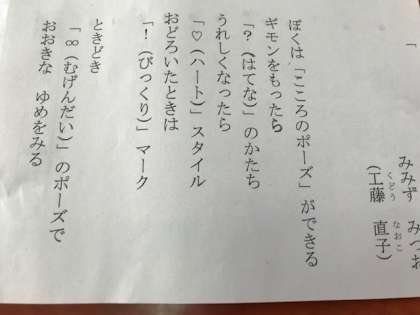 「
みみず　みつお
（工藤　直子）
くどう　なおこ
ぼくは「こころのポーズ」ができる
ギモンをもったら
「？（はてな）」のかたち
うれしくなったら
「♡（ハート）」スタイル
おどろいたときは
「！（びっくり）」マーク
ときどき
「∞（むげんだい）」のポーズで
おおきな　ゆめをみる